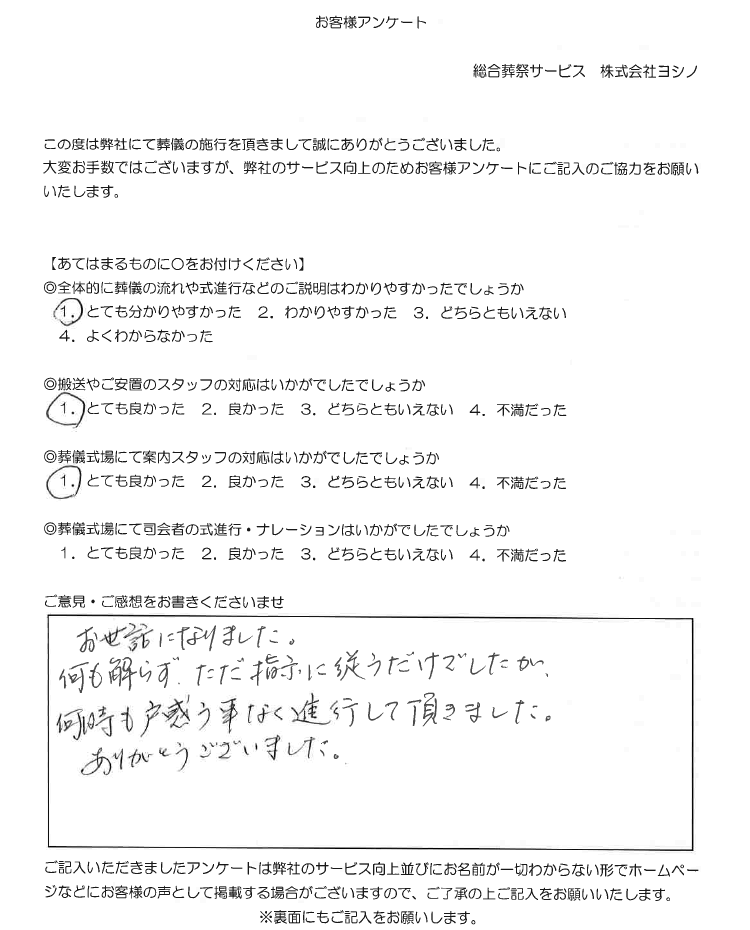 お客様アンケート
総合葬祭サービス　株式会社ヨシノ
この度は弊社にて葬儀の施行を頂きまして誠にありがとうございました。
大変お手数ではございますが、弊社のサービス向上のためお客様アンケートにご記入のご協力をお願い
いたします。
【あてはまるものに〇をお付けください】
◎全体的に葬儀の流れや式進行などのご説明はわかりやすかったでしょうか
1．とても分かりやすかった　2．わかりやすかった　3．どちらともいえない
4．よくわからなかった
◎搬送やご安置のスタッフの対応はいかがでしたでしょうか
1．とても良かった　2．良かった　3．どちらともいえない　4．不満だった
◎葬儀式場にて案内スタッフの対応はいかがでしたでしょうか
1．とても良かった　2．良かった　3．どちらともいえない　4．不満だった
◎葬儀式場にて司会者の式進行・ナレーションはいかがでしたでしょうか
1．とても良かった　2．良かった　3．どちらともいえない　4．不満だった
ご意見・ご感想をお書きくださいませ
お世話になりました。
何も解らず、ただ指示に従うだけでしたが、
何時も戸惑う事なく進行して頂きました。
ありがとうございました。
ご記入いただきましたアンケートは弊社のサービス向上並びにお名前が一切わからない形でホームペー
ジなどにお客様の声として掲載する場合がございますので、ご了承の上ご記入をお願いいたします。
※裏面にもご記入をお願いします。